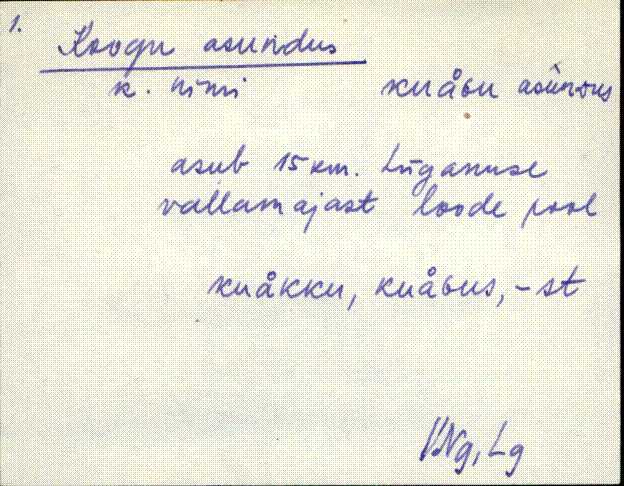 1.
Koogu asundus
k. nimi kuåɢu asunᴅus
asub 15 km. Lüganuse
vallamajast loode pool
kuåkku, kuåɢus, -st
VNg, Lg